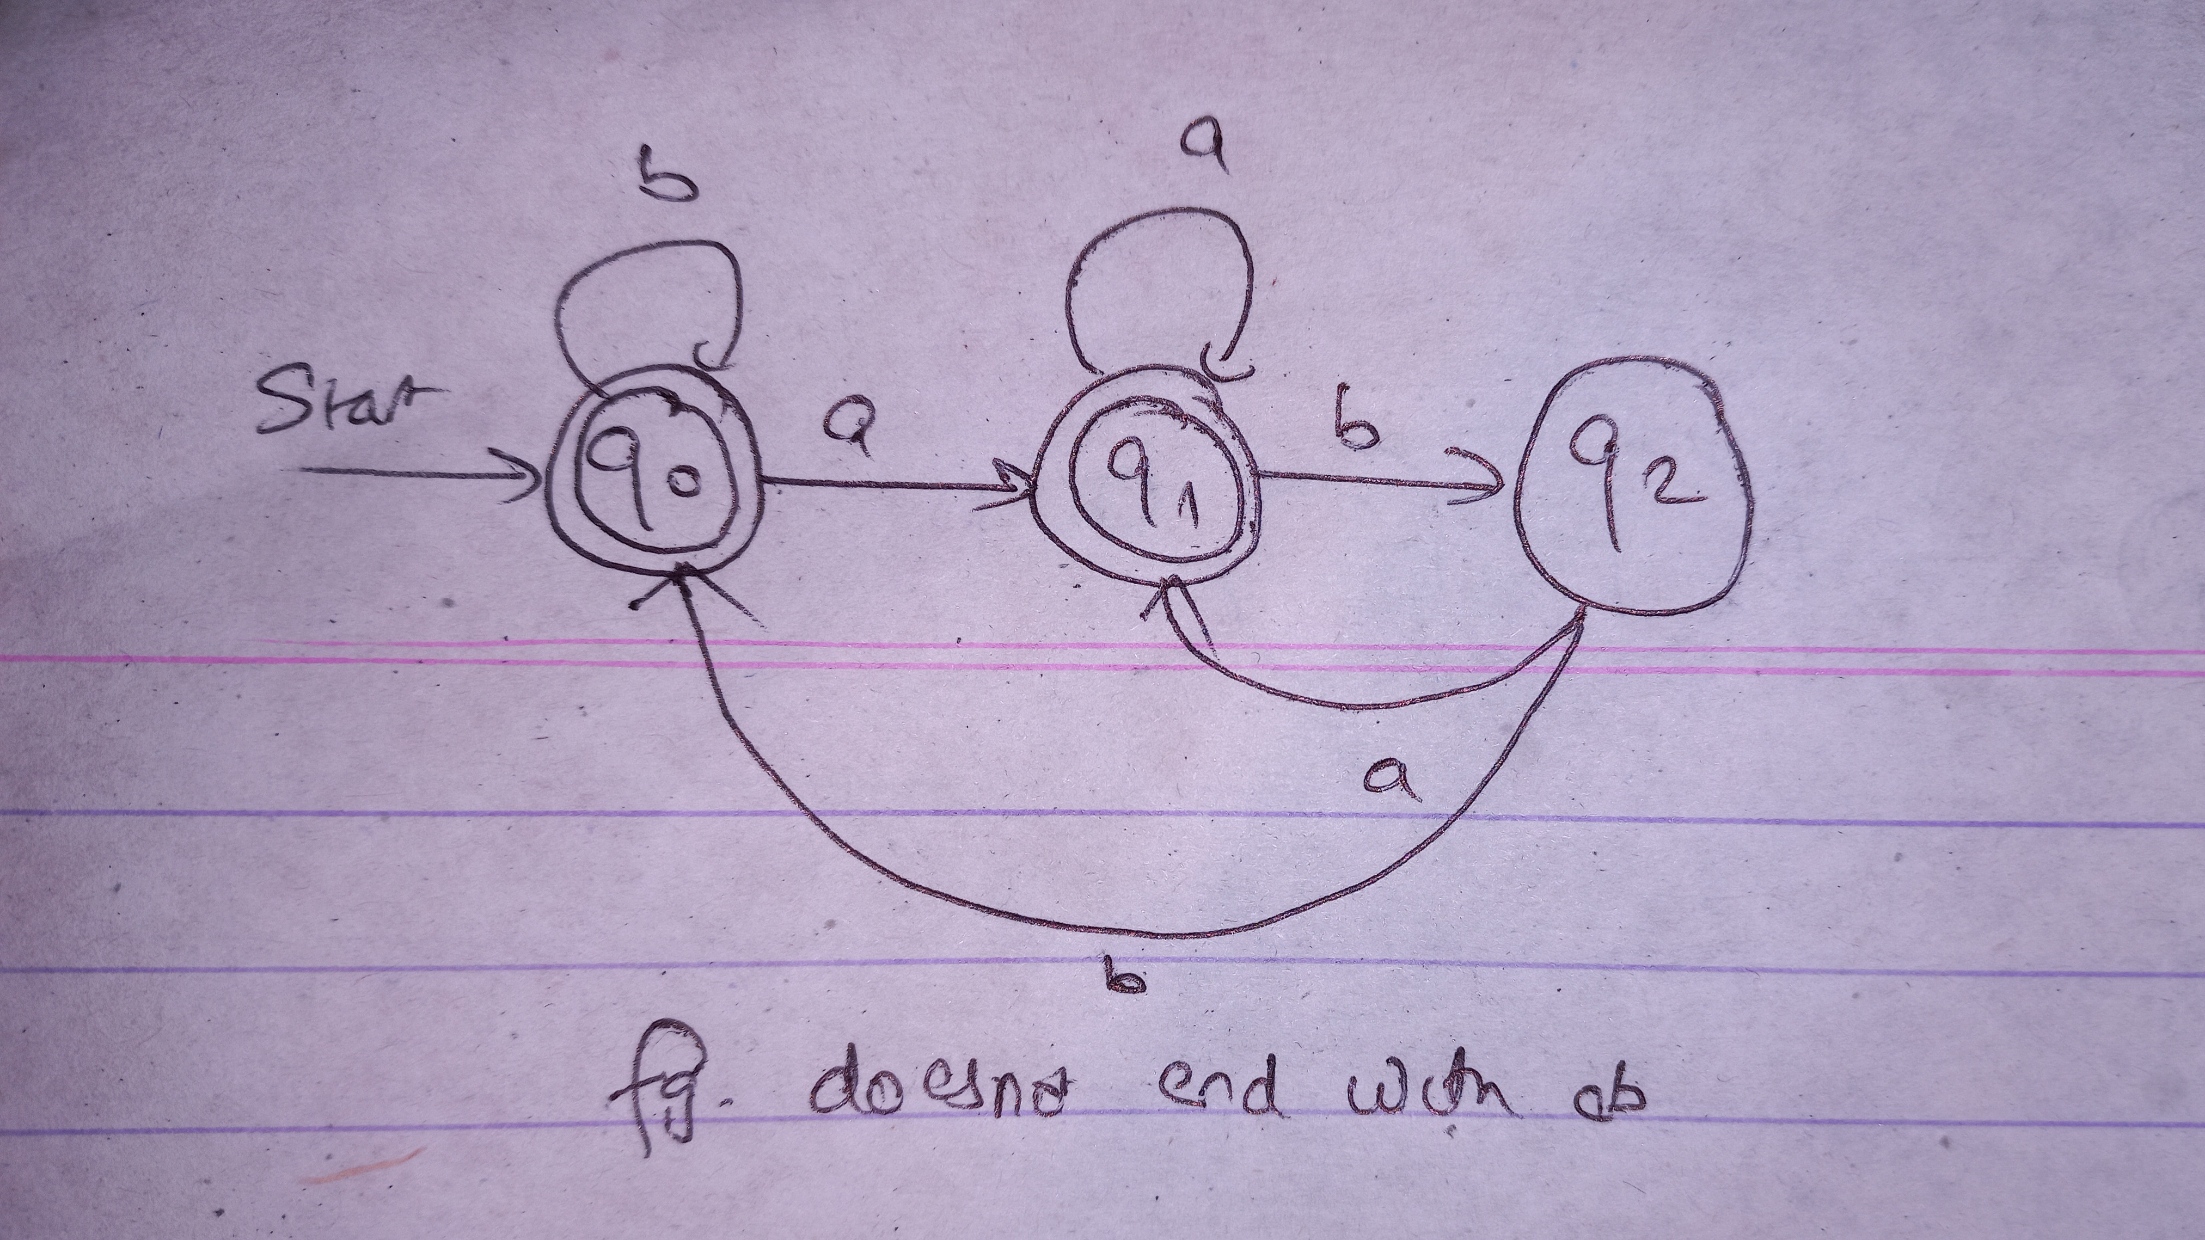 b
a
Start
a
b
q0
q1
q2
a
b
fg. doesnot end with ab